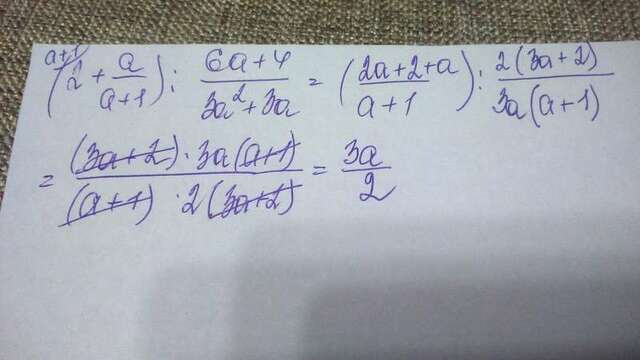 a+1
(2 + a/(a+1)) : (6a+4)/(3a²+3a) = ((2a+2+a)/(a+1)) : 2(3a+2)/(3a(a+1))
= ((3a+2) · 3a(a+1))/((a+1) · 2(3a+2)) = 3a/2